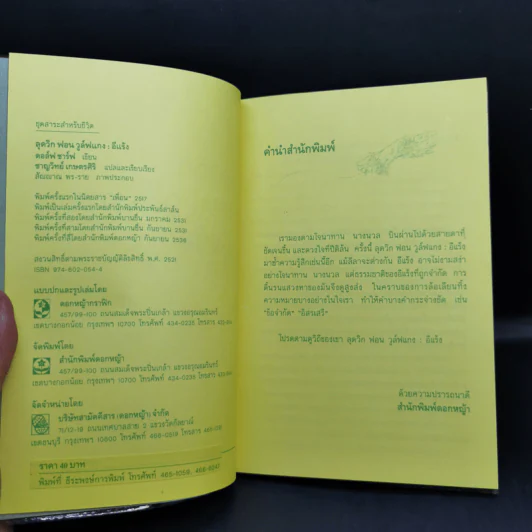 ชุดสาระสำหรับชีวิต
ลุดวิก ฟอน วูล์ฟแกง : อีแร้ง
ดอล์ฟ ชาร์ฟ เขียน
ชาญวิทย์ เกษตรศิริ แปลและเรียบเรียง
สัญญาณ พร-ราย ภาพประกอบ
พิมพ์ครั้งแรกในนิตยสาร "เพื่อน" 2517
พิมพ์เป็นเล่มครั้งแรกโดยสำนักพิมพ์ประพันธ์สาส์น
พิมพ์ครั้งที่สองโดยสำนักพิมพ์บานชื่น มกราคม 2521
พิมพ์ครั้งที่สามโดยสำนักพิมพ์บานชื่น กันยายน 2521
พิมพ์ครั้งที่สี่โดยสำนักพิมพ์ดอกหญ้า กันยายน 2536
สงวนลิขสิทธิ์ตามพระราชบัญญัติลิขสิทธิ์ พ.ศ. 2521
ISBN 974-602-054-4
แบบปกและรูปเล่มโดย
ดอกหญ้ากราฟิก
457/99-100 ถนนสมเด็จพระปิ่นเกล้า แขวงอรุณอมรินทร์
เขตบางกอกน้อย กรุงเทพฯ 10700 โทรศัพท์ 434-0235 โทรสาร
จัดพิมพ์โดย
สำนักพิมพ์ดอกหญ้า
457/99-100 ถนนสมเด็จพระปิ่นเกล้า แขวงอรุณอมรินทร์
เขตบางกอกน้อย กรุงเทพฯ 10700 โทรศัพท์ 434-0235 โทรสาร
จัดจำหน่ายโดย
บริษัทสามัคคีสาร (ดอกหญ้า) จำกัด
71/12-19 ถนนเทศบาลสาย 2 แขวงวัดกัลยาณ์
เขตธนบุรี กรุงเทพฯ 10600 โทรศัพท์ โทรสาร
ราคา 40 บาท
พิมพ์ที่ ธีระพงษ์การพิมพ์ โทรศัพท์ 465-1059,
คำนำสำนักพิมพ์
เรามองตามโจนาทาน นางนวล บินผ่านไปด้วยสายตาที่
ชื่นชม และดวงใจที่ปีติล้น ครั้งนี้ ลุดวิก ฟอน วูล์ฟแกง : อีแร้ง
มาย้ำความรู้สึกเช่นนี้อีก แม้ลีลาจะต่างกัน อีแร้ง อาจไม่งามเลย
อย่างโจนาทาน นางนวล แต่ธรรมชาติของอีแร้งที่ถูกจำกัด การ
ดิ้นรนแสวงหาของมันจึงดูสูงส่ง ในคราบของการล้อเลียนทิ้ง
ความหมายบางอย่างไว้ในใจเรา ทำให้คำบางคำกระจ่างชัด เช่น
"ข้อจำกัด" "อิสรเสรี"
โปรดตามดูวิถีของเขา ลุดวิก ฟอน วูล์ฟแกง : อีแร้ง
ด้วยความปรารถนาดี
สำนักพิมพ์ดอกหญ้า